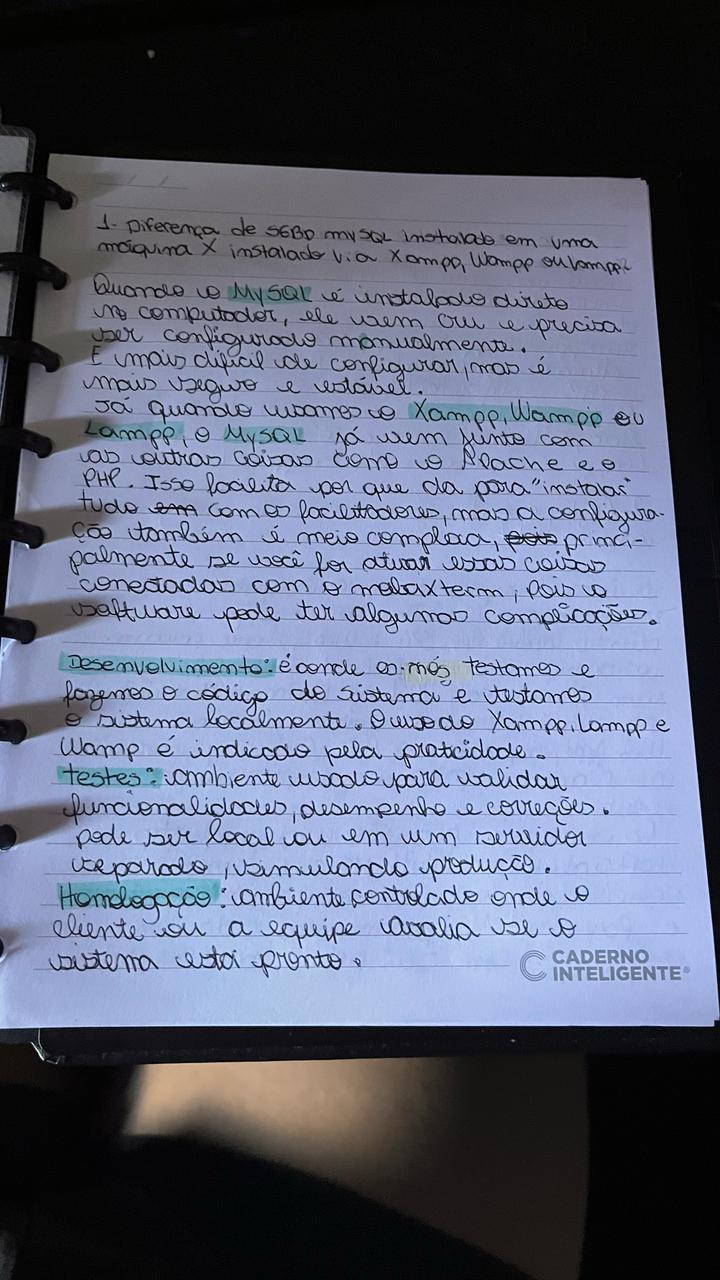 1- Diferença de SGBD mySQL instalado em uma
máquina X instalado via Xampp, Wampp ou Lampp?
Quando o MySQL é instalado direto
no computador, ele vem cru e precisa
ser configurado manualmente.
É mais difícil de configurar, mas é
mais seguro e estável.
Já quando usamos o Xampp, Wampp ou
Lampp, o MySQL já vem junto com
as outras coisas como o Apache e o
PHP. Isso facilita por que da para "instalar"
tudo em com os facilitadores, mas a configura-
ção também é meio complaca, pois princi-
palmente se você for ativar essas coisas
conectadas com o mobaxterm, pois o
software pode ter algumas complicações.
Desenvolvimento: é onde os nós testamos e
fazemos o código do sistema e testamos
o sistema localmente. O uso do Xampp, Lampp e
Wamp é indicado pela praticidade.
testes: ambiente usado para validar
funcionalidades, desempenho e correções.
pode ser local ou em um servidor
separado, simulando produção.
Homologação: ambiente controlado onde o
cliente ou a equipe avalia se o
sistema está pronto.
CADERNO
INTELIGENTE®